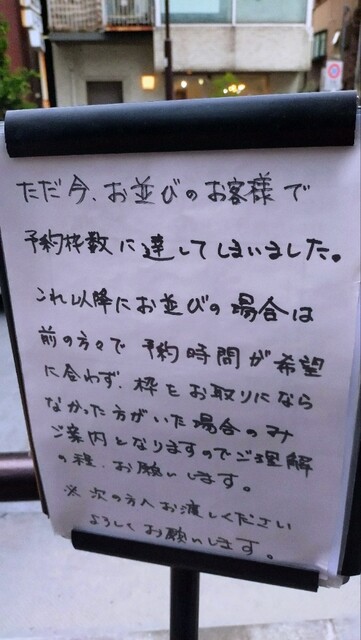 ただ今、お並びのお客様で
予約枠数に達してしまいました。
これ以降にお並びの場合は
前の方々で 予約時間が希望
に合わず、枠をお取りになら
なかった方がいた場合のみ
ご案内となりますのでご理解
の程、お願いします。
※ 次の方へお渡しください
よろしくお願いします。